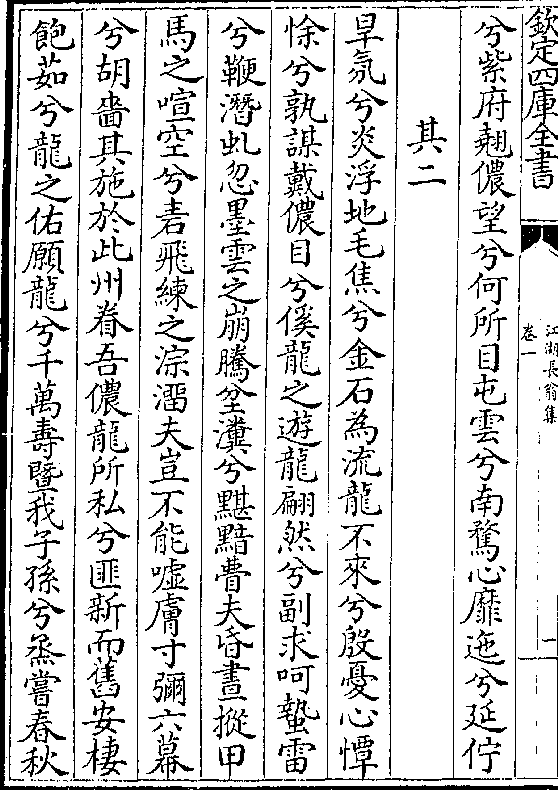 欽定四庫全書
江湖長翁集
卷一
一
兮紫府翹儂望兮何所目屯雲兮南騖心靡迤兮延佇
其二
旱氛兮炎浮地毛焦兮金石為流龍不來兮殷憂心憛
悇兮孰謀戴儂目兮傒龍之遊龍翩然兮副求呵蟄雷
兮鞭潛虬忽墨雲之崩騰坌瀵兮黮黯瞢夫昏晝摐甲
馬之喧空兮砉飛練之淙澑夫豈不能噓膚寸彌六幕
兮胡嗇其施於此州眷吾儂龍所私兮匪新而舊安棲
飽茹兮龍之佑願龍兮千萬壽暨我子孫兮烝嘗春秋